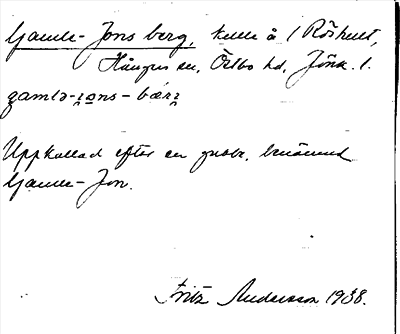 Gamle-Jons berg, kulle å 1 Röshult,
Hånger sn, Östbo hd, Jönk. l.
gamlə-jons-bærj
Uppkallad efter en gubbe, benämnd
Gamle-Jon.
Fritz Andersson 1938.